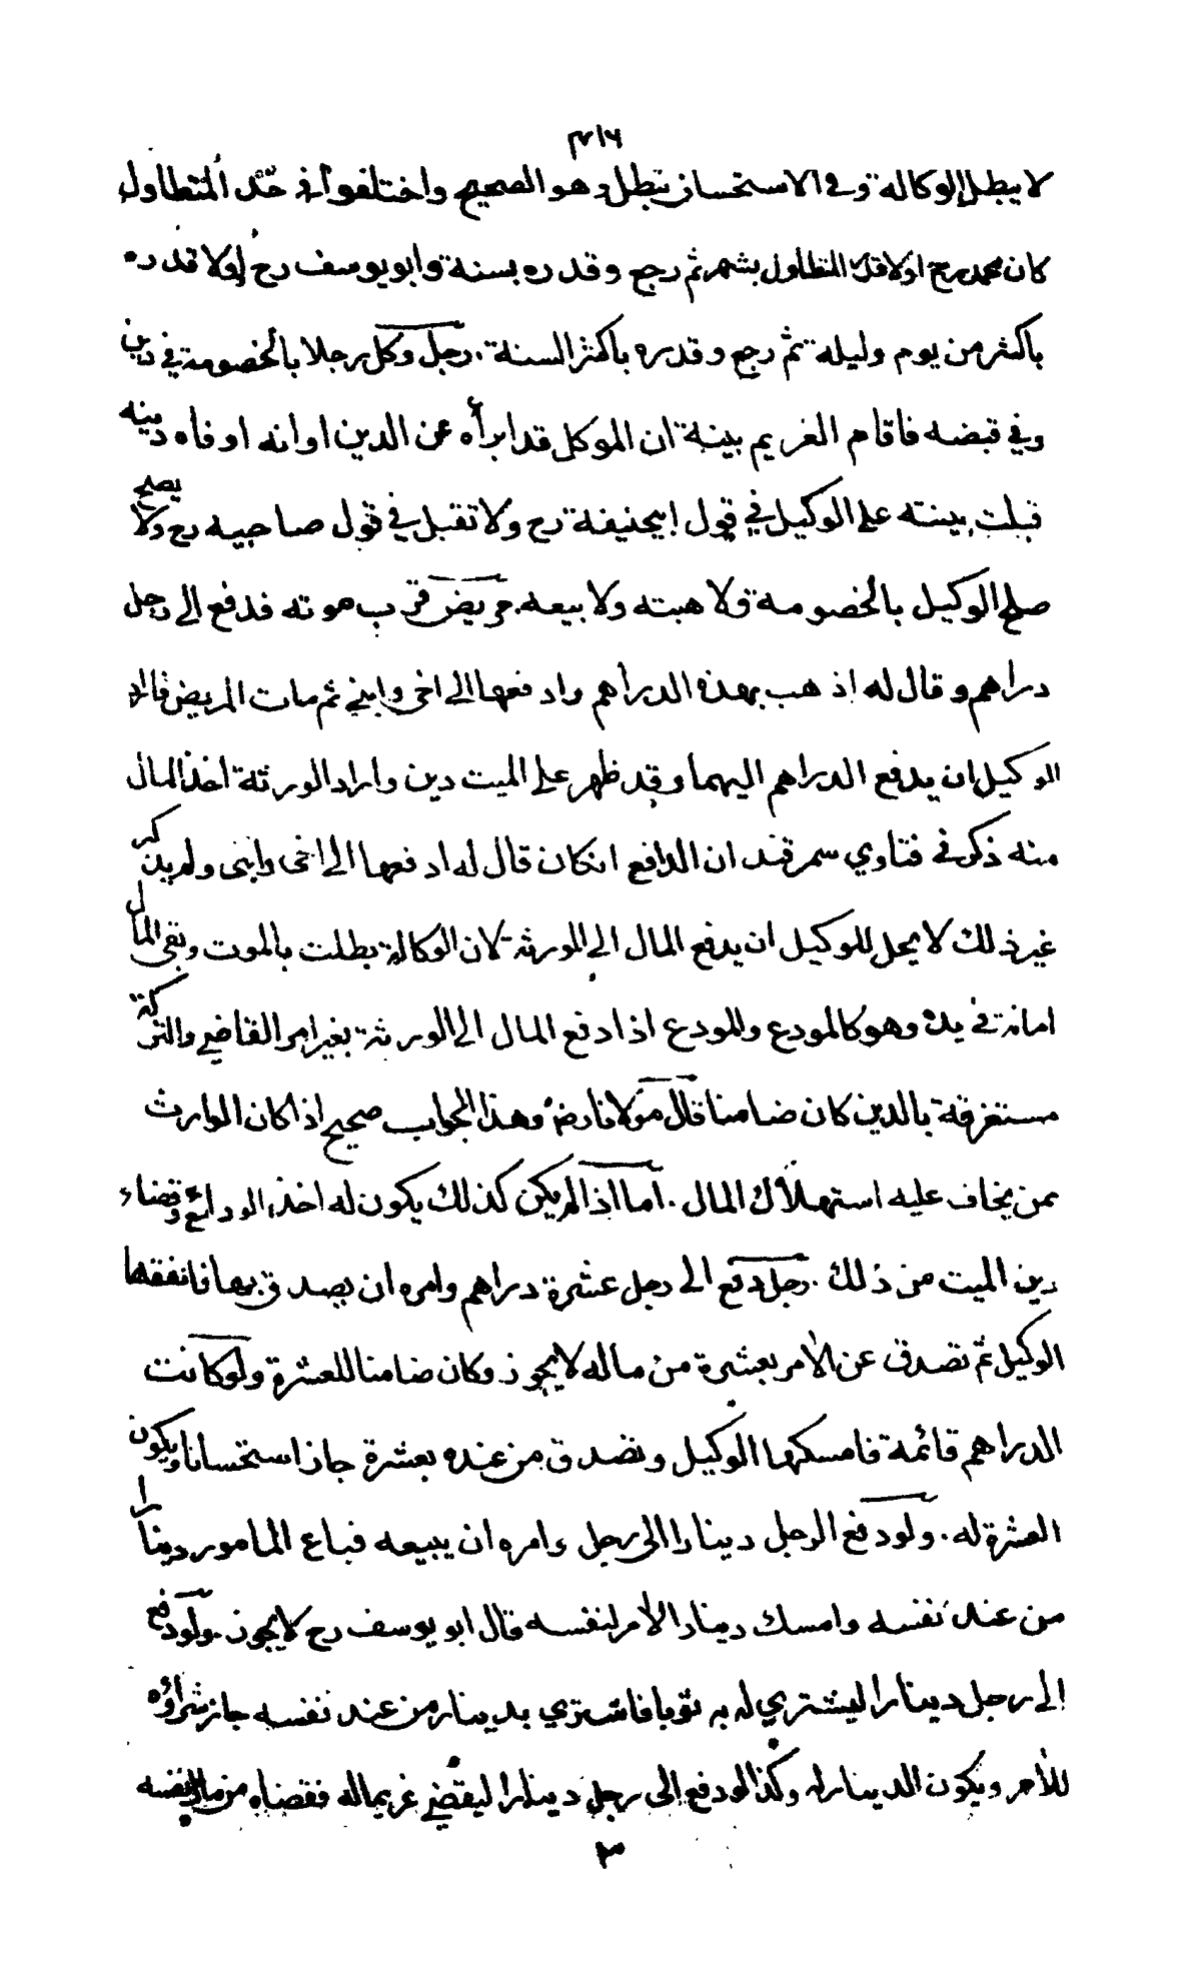 ٣١٦
لا يبطل الوكالة وفى الاستحسان تبطل وهو الصحيح واختلفوا فى حد المتطاول
كان محمد رح اولا قدر المتطاول بشهر ثم رجع وقدره بسنة وابويوسف رح اولا قدره
باكثر من يوم وليلة ثم رجع وقدره باكثر السنة . رجل وكل رجلا بالخصومة في دين
وفي قبضه فاقام الغريم بينة ان الموكل قد ابرأه عن الدين او انه اوفاه دينه
قبلت بينته على الوكيل في قول ابيحنيفة رح ولا تقبل في قول صاحبيه رح ولا يصح
صلح الوكيل بالخصومة ولا هبته ولا بيعه . مريض قرب موته فدفع الى رجل
دراهم وقال له اذهب بهذه الدراهم وادفعها الى اخى وابني ثم مات المريض فاراد
الوكيل ان يدفع الدراهم اليهما وقد ظهر على الميت دين واراد الورثة اخذ المال
منه ذكر فى فتاوي سمرقند ان الدافع انكان قال له ادفعها الى اخى وابنى ولم يذكر
غير ذلك لا يحل للوكيل ان يدفع المال الى الورثة لان الوكالة بطلت بالموت وبقى المال
امانة فى يده وهو كالمودع والمودع اذا دفع المال الى الورثة بغير امر القاضي والتركة
مستغرقة بالدين كان ضامنا قال مولانا رض وهذا الجواب صحيح اذا كان الوارث
ممن يخاف عليه استهلاك المال . اما اذا لم يكن كذلك يكون له اخذ الودائع وقضاء
دين الميت من ذلك . رجل دفع الى رجل عشرة دراهم وامره ان يصدق بها فانفقها
الوكيل ثم تصدق عن الامر بعشرة من ماله لا يجوز وكان ضامنا للعشرة ولو كانت
الدراهم قائمة فامسكها الوكيل وتصدق من عنده بعشرة جاز استحسانا ويكون
العشرة له . ولو دفع الرجل دينارا الى رجل وامره ان يبيعه فباع المامور دينارا
من عند نفسه وامسك دينار الامر لنفسه قال ابو يوسف رح لا يجوز . ولو دفع
الى رجل دينارا ليشتري له به ثوبا فاشتري بدينار من عند نفسه جاز شراؤه
للامر ويكون الدينار له وكذا لو دفع الى رجل دينارا ليقضي غريما له فقضاه من مال نفسه
٣